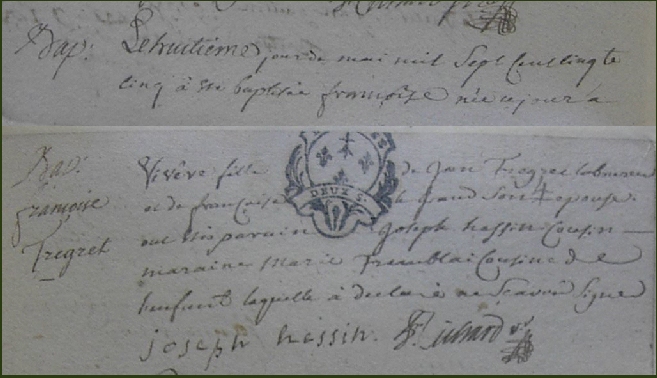 Bap: Le huitieme jour de mai mil Sept Cent Cinqte
Cinq à été baptisée françoise née ce jour à
Bap: françoise Tregret
Vivêre fille de Jean Tregret laboureur
et de françoise le Grand Son Epouse.
ont étés parain joseph hessin Cousin
maraine Marie Tremblai Cousine de
lenfant laquelle à declaré ne Scavoir Signer
DEUX S.
joseph hessin.